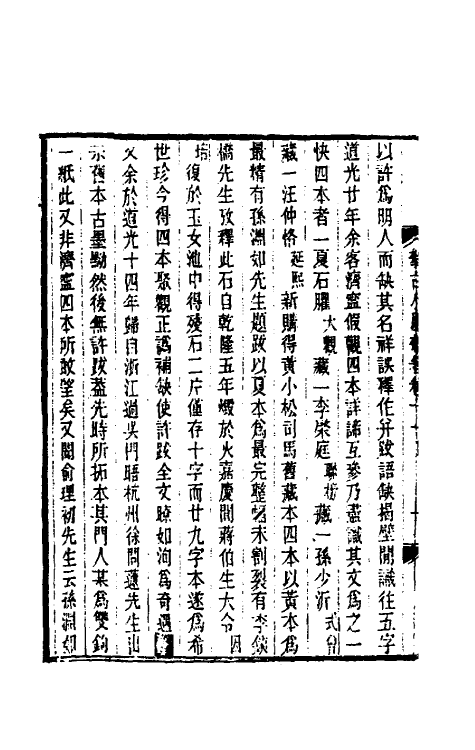 以許爲明人而缺其名祥誤釋作幷跋語缺揭壁間議往五字
道光廿年余客濟寧假觀四本詳諦互參乃盡識其文爲之一
快四本者一夏石臞大觀藏一李榮庭聯榜藏一孫少沂式曾
藏一汪仲恪延熙新購得黃小松司馬舊藏本四本以黃本爲
最精有孫淵如先生題跋以夏本爲最完整幅未割裂有李鐵
橋先生攷釋此石自乾隆五年燬於火嘉慶間蔣伯生大令因
培復於玉女池中得殘石二片僅存十字而廿九字本遂爲希
世珍今得四本聚觀正譌補缺使許跋全文瞭如洵爲奇遇
又余於道光十四年歸自浙江過吳門晤杭州徐問蘧先生出
示舊本古墨黝然後無許跋蓋先時所拓本其門人某爲雙鉤
一紙此又非濟寧四本所敢望矣又聞俞理初先生云孫淵如